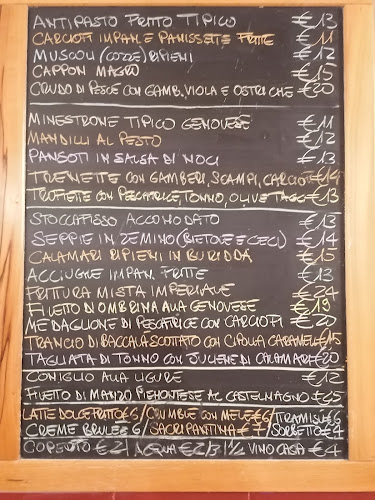 ANTIPASTO FRITTO TIPICO €13
CARCIOFI IMPAN. E PANISSETE FRITTE €11
MUSCOLI (COZZE) RIPIENI €12
CAPPON MAGRO €15
CRUDO DI PESCE CON GAMB, VIOLA E OSTRICHE €20
MINESTRONE TIPICO GENOVESE €11
MANDILLI AL PESTO €12
PANSOTI IN SALSA DI NOCI €13
TRENETTE CON GAMBERI, SCAMPI, CARCIOFI €14
TROFIETTE CON PESCATRICE, TONNO, OLIVE TAGG €13
STOCCAFISSO ACCOMODATO €13
SEPPIE IN ZEMINO (BIETOLE E CECI) €14
CALAMARI RIPIENI IN BURIDDA €15
ACCIUGHE IMPAN. FRITTE €13
FRITTURA MISTA IMPERIALE €24
FILETTO DI OMBRINA ALLA GENOVESE €19
MEDAGLIONE DI PESCATRICE CON CARCIOFI €20
TRANCIO DI BACCALÀ SCOTTATO CON CIPOLLA CARAMELL €15
TAGLIATA DI TONNO CON JULIENE DI CALAMARI €20
CONIGLIO ALLA LIGURE €12
FILETTO DI MANZO PIEMONTESE AL CASTELMAGNO €25
LATTE DOLCE FRITTO €6/ CRUMBLE CON MELE €6/ TIRAMISÙ €6
CREME BRULEE 6/ SACRIPANTINA €7/ SORBETTO €4
COPERTO €2/ ACQUA €2/3 1/2 VINO CASA €4